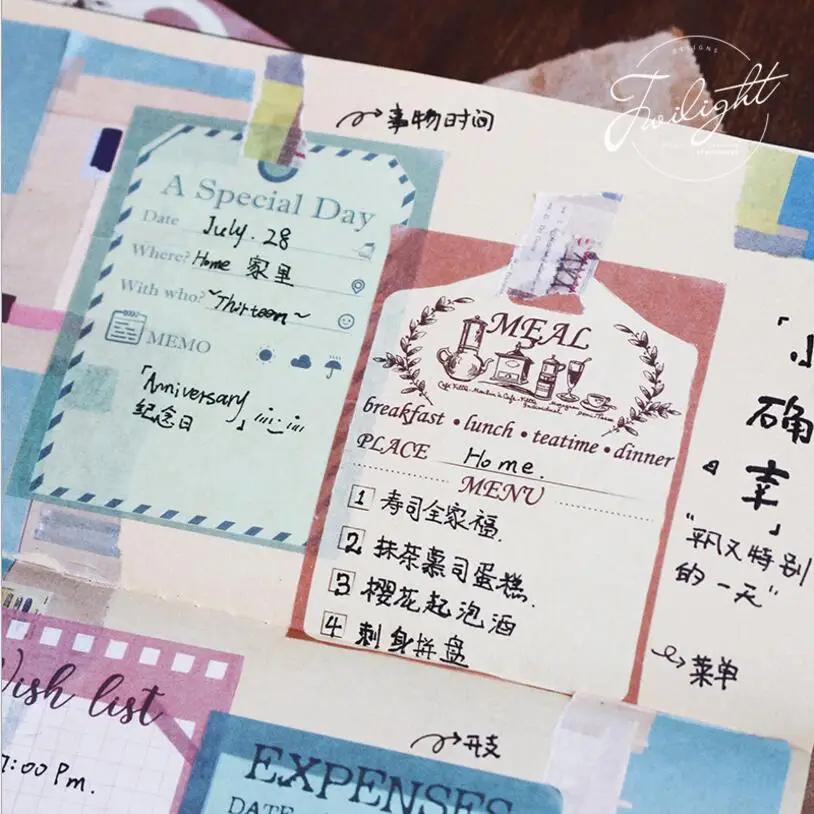 DESIGNS
Twilight
事物时间
A Special Day
Date July. 28
Where? Home 家里
With who? ~Thirteen~
MEMO
「Anniversary
纪念日」
MEAL
breakfast • lunch • teatime • dinner
PLACE Home.
MENU
1 寿司全家福.
2 抹茶慕司蛋糕.
3 樱花起泡酒
4 刺身拼盘
「小
确
幸」
"平凡又特别
的一天"
菜单
Wish list
7:00 Pm.
开支
EXPENSES
DATE